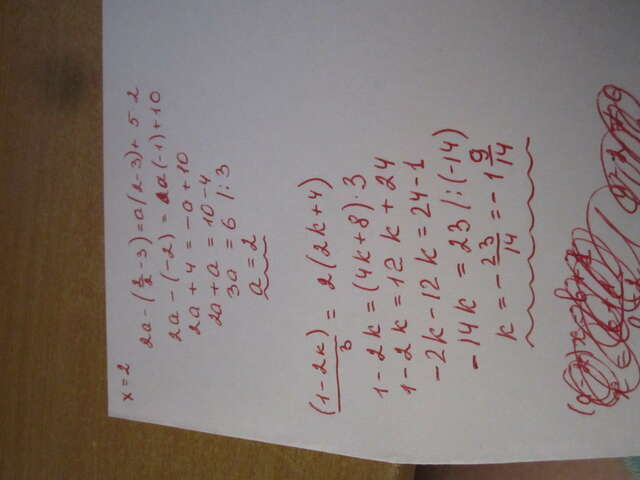 x = 2
2a - (2/2 - 3) = a(2-3) + 5 2
2a - (-2) = a(-1) + 10
2a + 4 = -a + 10
2a + a = 10 - 4
3a = 6 /:3
a = 2
(1-2k)/3 = 2(2k+4)
1 - 2k = (4k+8)·3
1 - 2k = 12k + 24
-2k - 12k = 24 - 1
-14k = 23 /:(-14)
k = -23/14 = -1 9/14